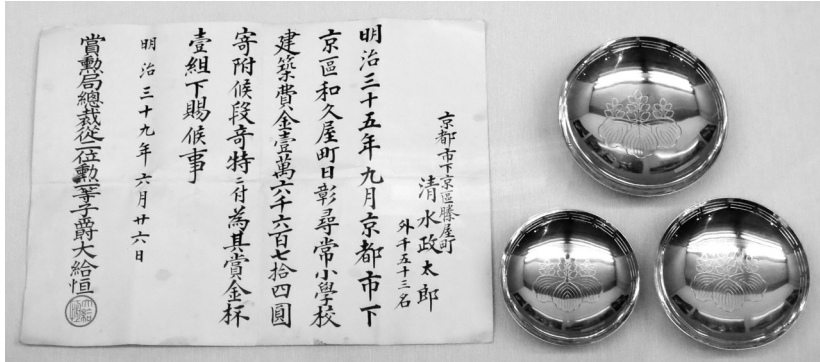 京都市下京區勝屋町
清水政太郎
外千五十三名
明治三十五年九月京都市下
京區和久屋町日彰尋常小學校
建築費金壹萬六千六百七拾四圓
寄附候段奇特ニ付為其賞金杯
壹組下賜候事
明治三十九年六月廿六日
賞勲局總裁從二位勲一等子爵大給恒